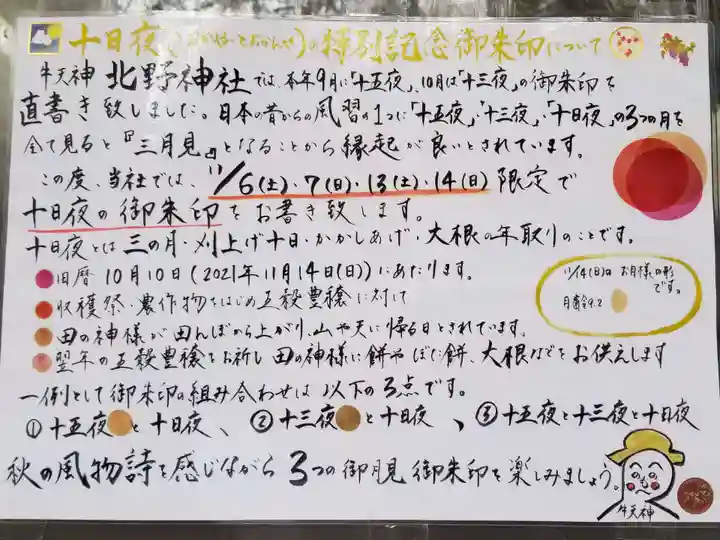 十日夜(とおかや・とおかんや)の特別記念御朱印について
牛天神 北野神社では、本年9月に「十五夜」、10月は「十三夜」の御朱印を
直書き致しました。日本の昔からの風習の1つに「十五夜」・「十三夜」・「十日夜」の3つの月を
全て見ると『三月見』となることから縁起が良いとされています。
この度、当社では、11/6(土)・7(日)・13(土)・14(日)限定で
十日夜の御朱印をお書き致します。
十日夜とは三の月・刈上げ十日・かかしあげ・大根の年取りのことです。
旧暦10月10日(2021年11月14日(日))にあたります。
収穫祭・農作物をはじめ五穀豊穣に対して
田の神様が田んぼから上がり、山や天に帰る日とされています。
翌年の五穀豊穣をお祈し田の神様に餅やぼた餅、大根などをお供えします
11/14(日)のお月様の形
です。
月齢9.2
一例として御朱印の組み合わせは以下の3点です。
①十五夜と十日夜、②十三夜と十日夜、③十五夜と十三夜と十日夜
秋の風物詩を感じながら3つの御月見御朱印を楽しみましょう。
牛天神